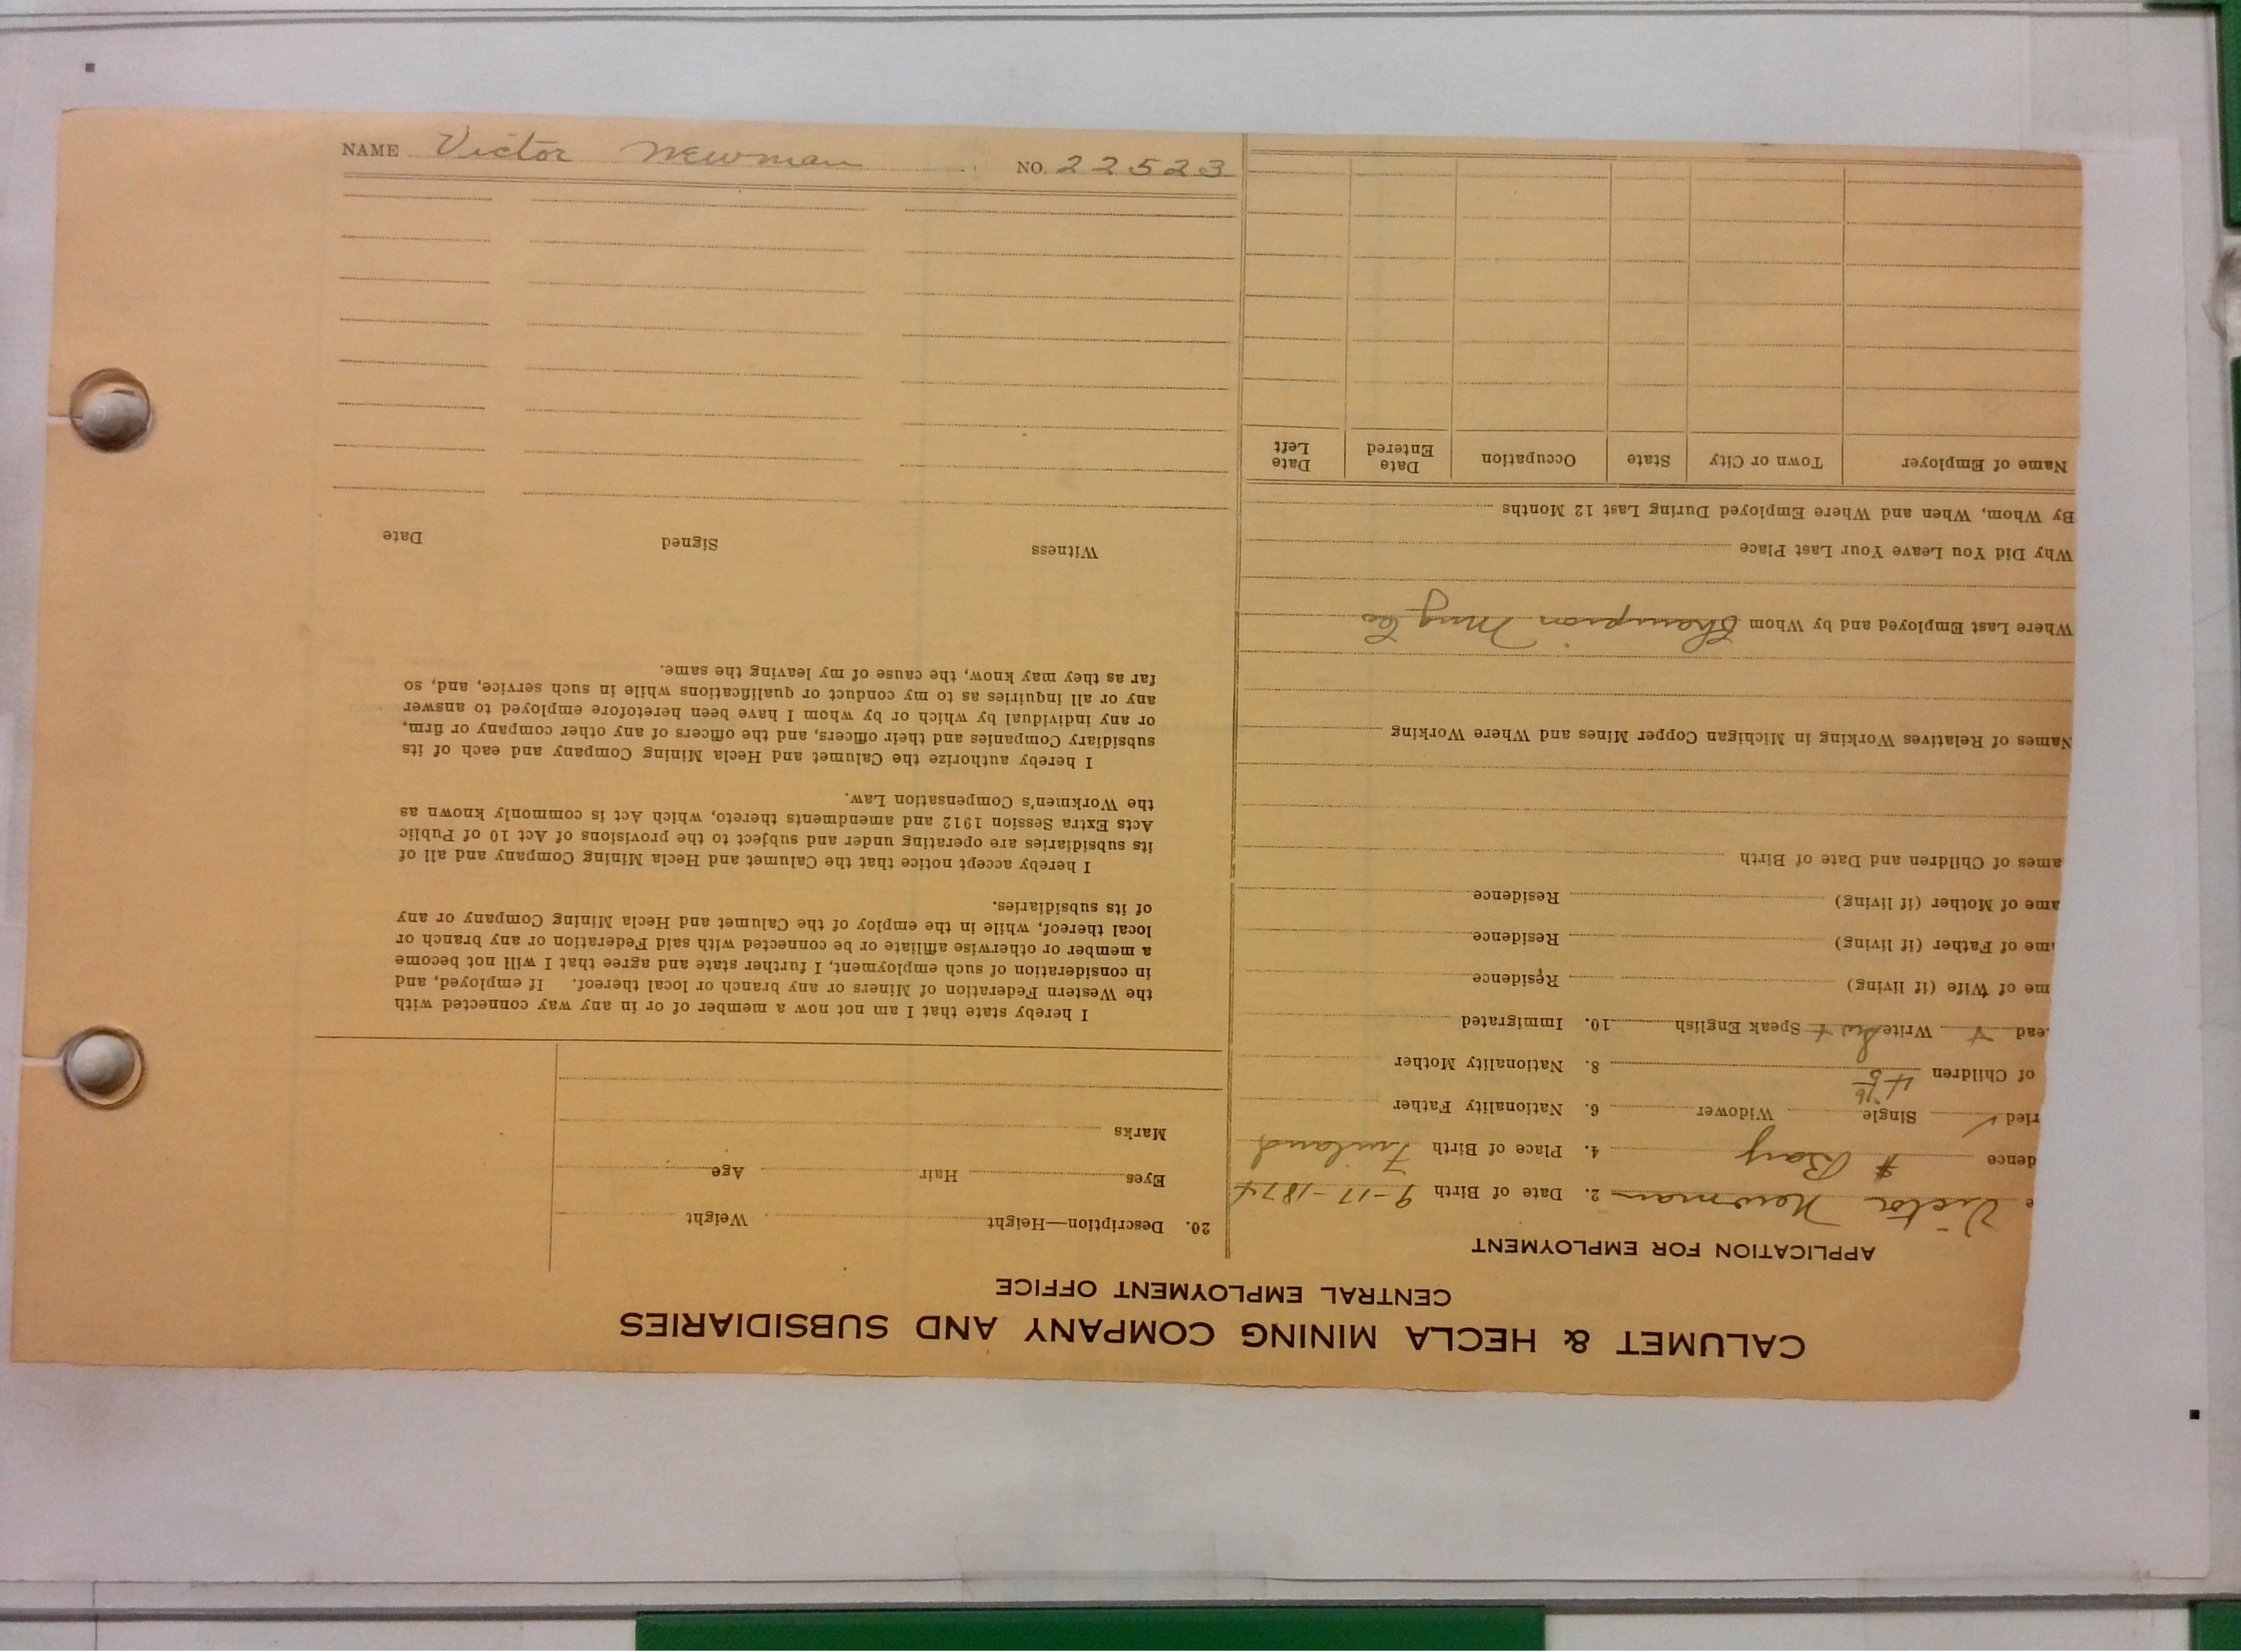 NAME Victor Newman NO. 22523
CALUMET & HECLA MINING COMPANY AND SUBSIDIARIES
CENTRAL EMPLOYMENT OFFICE
APPLICATION FOR EMPLOYMENT
e Victor Newman 2. Date of Birth 9-17-1874
dence # Bay 4. Place of Birth Finland
ried ✓ Single Widower 6. Nationality Father
of Children 8. Nationality Mother
ead Write Speak English 10. Immigrated
me of Wife (if living) Residence
me of Father (if living) Residence
ame of Mother (if living) Residence
ames of Children and Date of Birth
Names of Relatives Working in Michigan Copper Mines and Where Working
Where Last Employed and by Whom Champion Mng Co
Why Did You Leave Your Last Place
By Whom, When and Where Employed During Last 12 Months
Name of Employer Town or City State Occupation Date Entered Date Left
20. Description—Height Weight
Eyes Hair Age
Marks
I hereby state that I am not now a member of or in any way connected with
the Western Federation of Miners or any branch or local thereof. If employed, and
in consideration of such employment, I further state and agree that I will not become
a member or otherwise affiliate or be connected with said Federation or any branch or
local thereof, while in the employ of the Calumet and Hecla Mining Company or any
of its subsidiaries.
I hereby accept notice that the Calumet and Hecla Mining Company and all of
its subsidiaries are operating under and subject to the provisions of Act 10 of Public
Acts Extra Session 1912 and amendments thereto, which Act is commonly known as
the Workmen's Compensation Law.
I hereby authorize the Calumet and Hecla Mining Company and each of its
subsidiary Companies and their officers, and the officers of any other company or firm,
or any individual by which or by whom I have been heretofore employed to answer
any or all inquiries as to my conduct or qualifications while in such service, and, so
far as they may know, the cause of my leaving the same.
Witness Signed Date